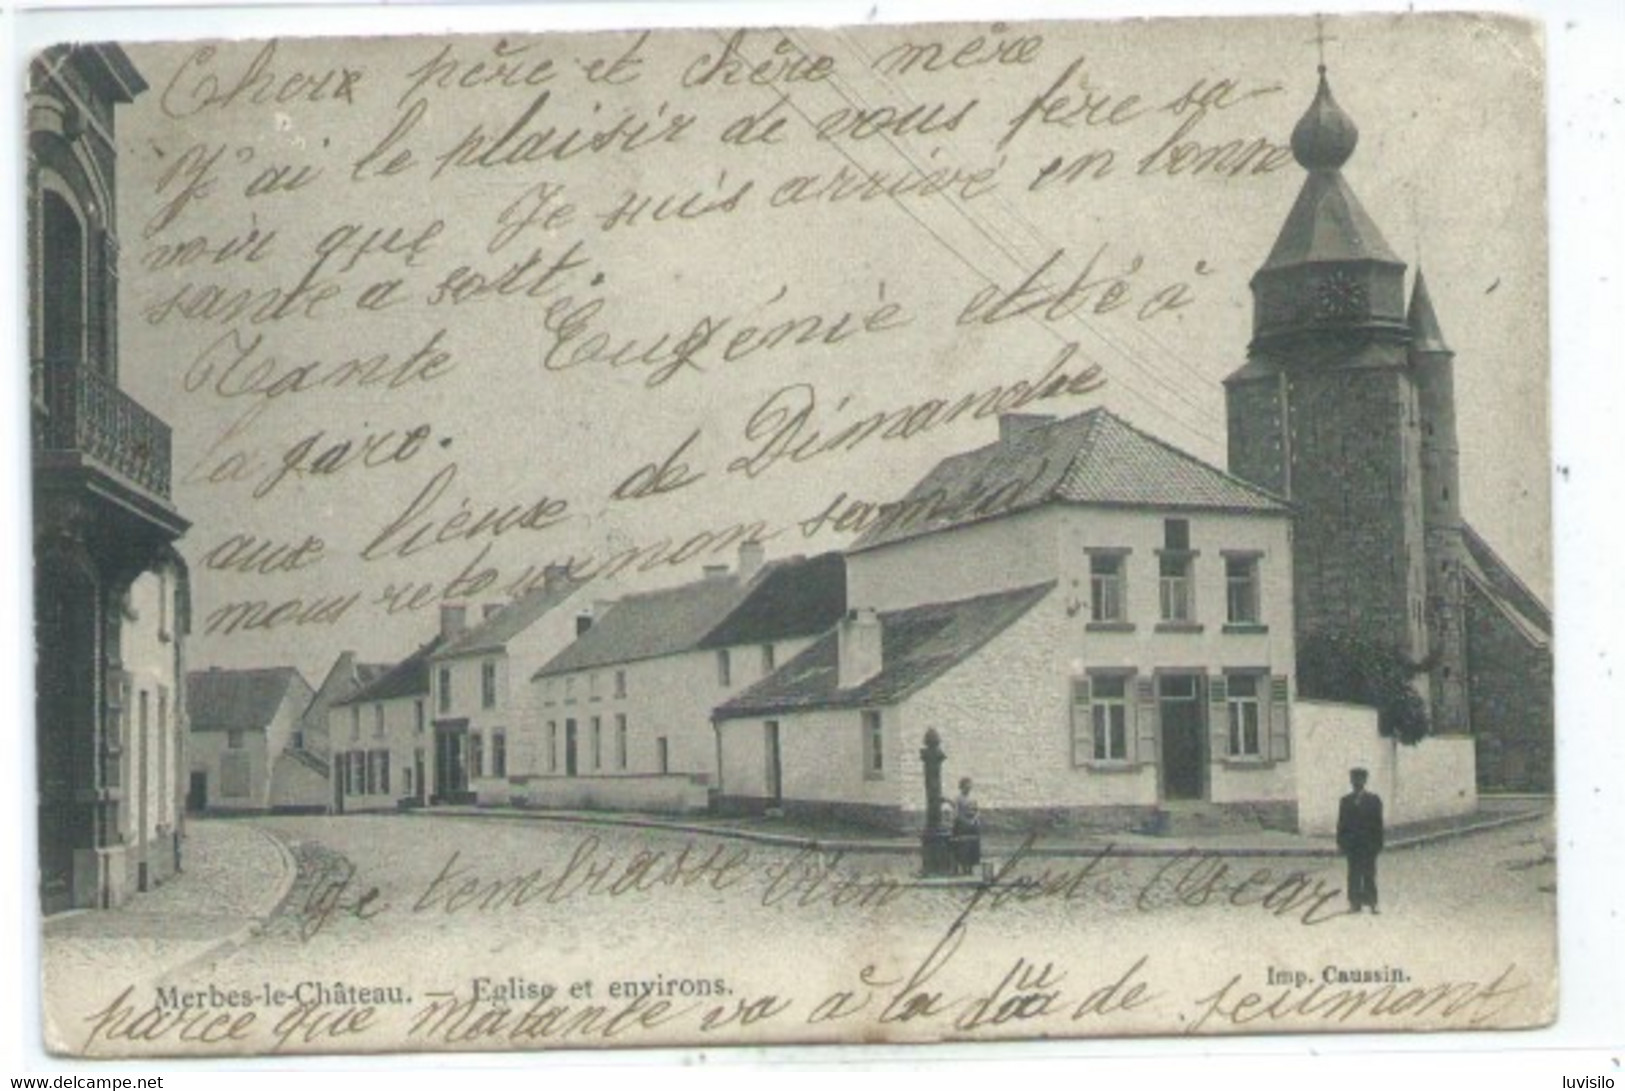 Chers père et chère mère
J'ai le plaisir de vous fére sa-
voir que Je suis arrivé en bonne
sante a sott.
Tante Eugénie etté à
la gare.
aux lieux de Dimanche
nous retournon samedi
Je tembrasse bien fort Oscar
Merbes-le-Château. — Eglise et environs.
Imp. Caussin.
parce que matante va à la de Jeumont
www.delcampe.net
luvisilo